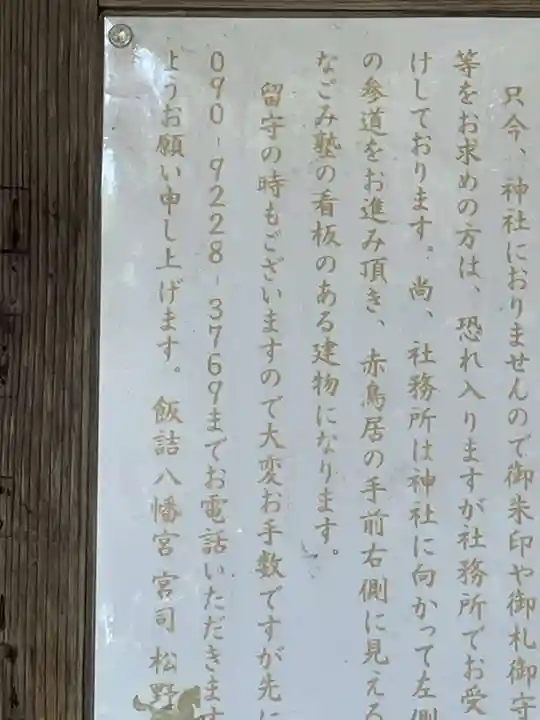 只今、神社におりませんので御朱印や御札御守
等をお求めの方は、恐れ入りますが社務所でお受
けしております。尚、社務所は神社に向かって左側
の参道をお進み頂き、赤鳥居の手前右側に見える
なごみ塾の看板のある建物になります。
留守の時もございますので大変お手数ですが先に
090-9228-3769までお電話いただきます
ようお願い申し上げます。飯詰八幡宮 宮司 松野